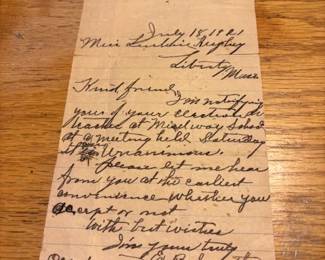 July 18, 1921
Miss
Liberty
Miss
Kind friend,
I'm notifying
you of your election as
teacher at Midway School
at a meeting held Saturday
Unanimous.
please let me hear
from you at the earliest
convenience Whether you
except or not
with best wishes
I'm yours truly